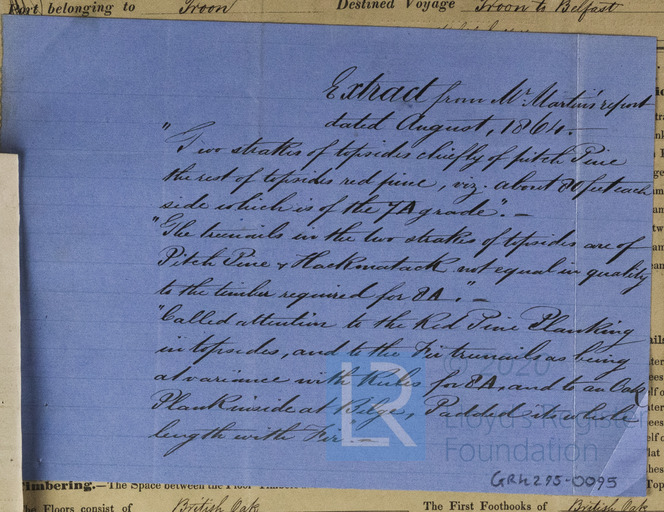 Port belonging to Troon Destined Voyage Troon to Belfast
Extract from Mr. Martin's report
dated August, 1864. —
"Two strakes of topsides chiefly of pitch Pine
the rest of topsides red pine, viz. about 80 feet each
side which is of the 7A grade". —
"The treenails in the two strakes of topsides are of
Pitch Pine & Hackmatack not equal in quality
to the timber required for 8A." —
"Called attention to the Red Pine Planking
in topsides, and to the Fir treenails as being
at variance with Rules for 8A, and to an Oak
Plank inside at Bilge, Padded its whole
length with Fir" —
LR © 2020
Lloyd's Register
Foundation
GRH275-0095
imbering.—The Space between the Floor
he Floors consist of British Oak The First Foothooks of British Oak